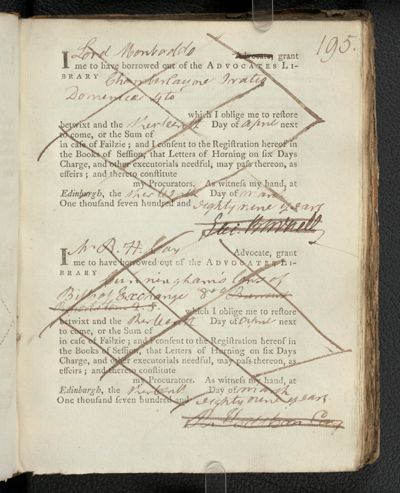 195.
I Lord Monboddo Advocate, grant
me to have borrowed out of the ADVOCATES LI-
BRARY Chamberlayne Oratio
Dominica 4to
which I oblige me to restore
betwixt and the thirteenth Day of April next
to come, or the Sum of
in case of Failzie; and I consent to the Registration hereof in
the Books of Session, that Letters of Horning on six Days
Charge, and other executorials needful, may pass thereon, as
effeirs; and thereto constitute
my Procurators. As witness my hand, at
Edinburgh, the thirteenth Day of March
One thousand seven hundred and eighty nine years
I Mr R. H. Cay Advocate, grant
me to have borrowed out of the ADVOCATES LI-
BRARY Cunningham's Law of
Bills of Exchange 8vo
which I oblige me to restore
betwixt and the thirteenth Day of April next
to come, or the Sum of
in case of Failzie; and I consent to the Registration hereof in
the Books of Session, that Letters of Horning on six Days
Charge, and other executorials needful, may pass thereon, as
effeirs; and thereto constitute
my Procurators. As witness my hand, at
Edinburgh, the thirteenth Day of March
One thousand seven hundred and eighty nine years
Cay